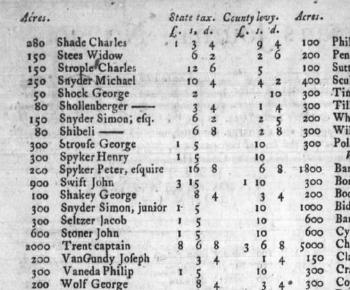 Acres. State tax. County levy. Acres.
£. s. d. £. s. d.
280 Shade Charles 1 3 4 9 4 100 Phi
150 Stees Widow 6 2 2 6 200 Pen
150 Strople Charles 12 6 5 100 Sut
250 Snyder Michael 10 4 4 2 400 Scu
50 Shock George 2 10 300 Tin
80 Shollenberger — 3 4 1 4 300 Til
150 Snyder Simon, esq. 6 2 2 5 200 Wh
80 Shibeli — 6 8 2 8 300 Wil
300 Strouse George 1 5 10 300 Pol
300 Spyker Henry 1 5 10
200 Spyker Peter, esquire 16 8 6 8 1800 Bar
900 Swift John 3 15 1 10 300 Bo
100 Shakey George 8 4 3 4 200 Bo
300 Snyder Simon, junior 1 5 10 1000 Bid
300 Seltzer Jacob 1 5 10 600 Bar
600 Stoner John 1 5 10 600 Cy
2000 Trent captain 8 6 8 3 6 8 5000 Ch
200 VanGundy Joseph 3 4 1 4 150 Cla
300 Vaneda Philip 1 5 10 300 Cra
200 Wolf George 8 4 3 4 300